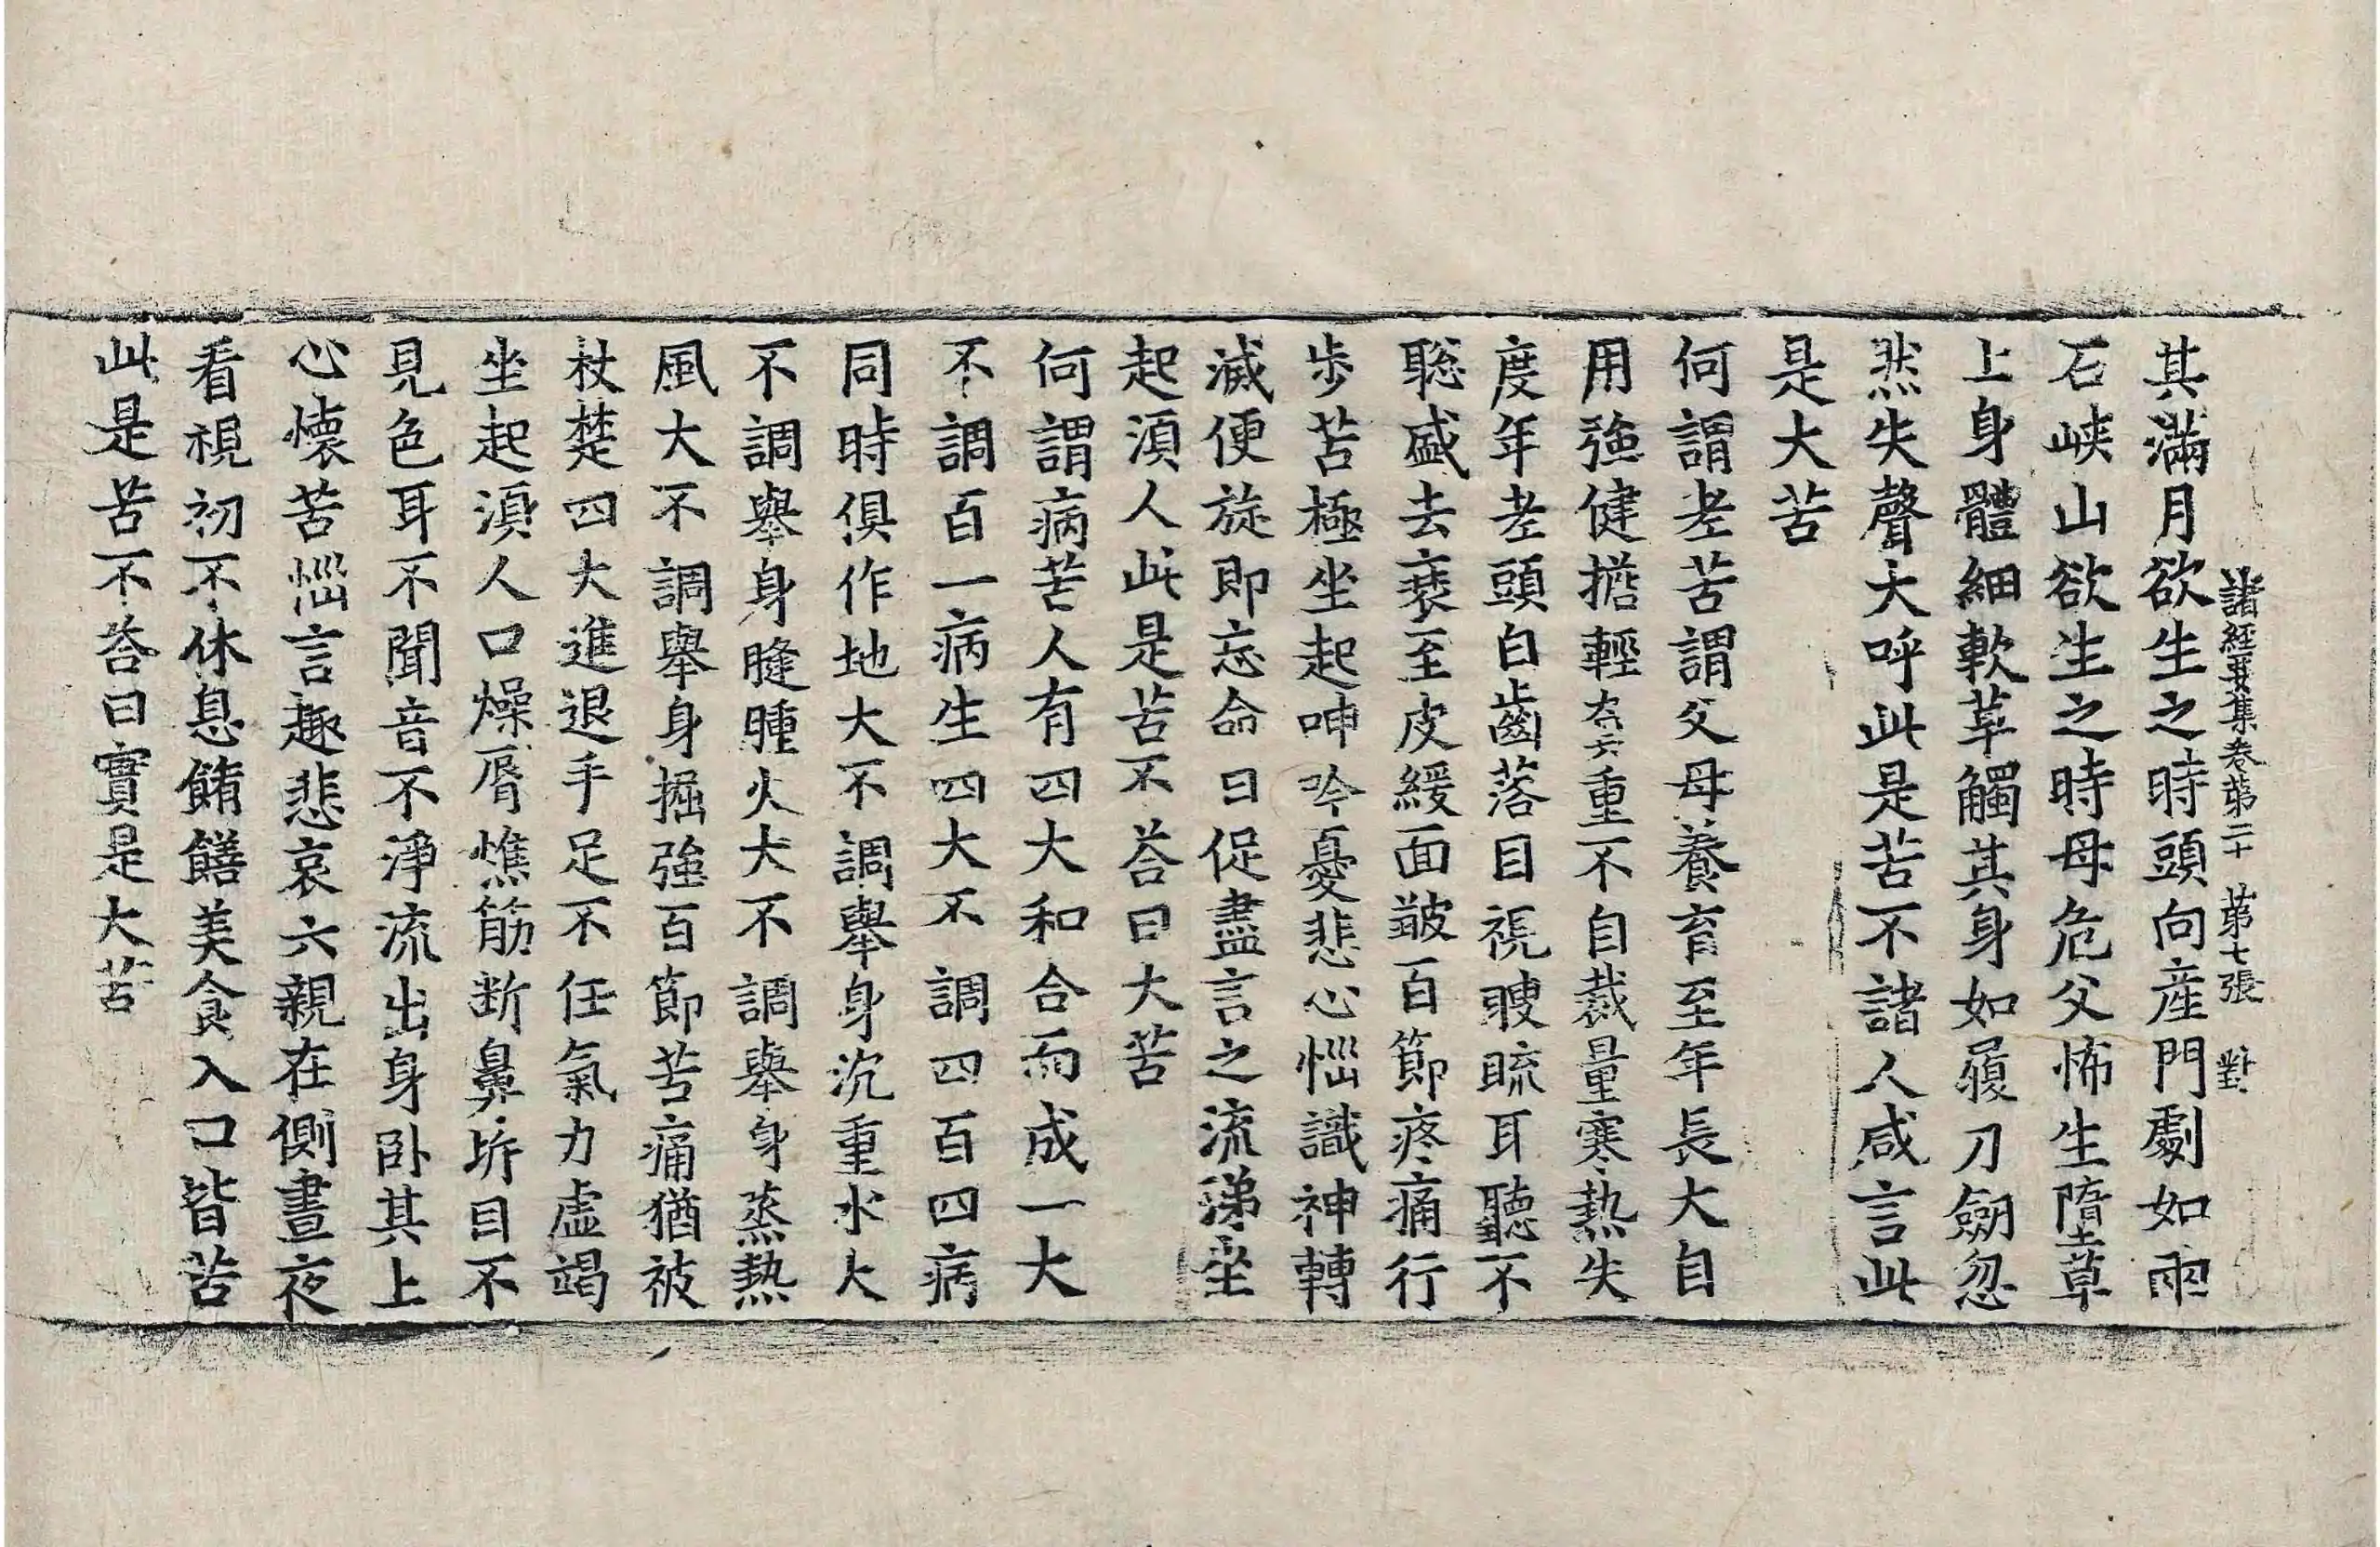 諸經要集卷第二十 第七張 對
其滿月欲生之時頭向産門劇如兩
石峽山欲生之時母危父怖生墮草
上身體細軟草觸其身如履刀劒忽
然失聲大呼此是苦不諸人咸言此
是大苦
何謂老苦謂父母養育至年長大自
用強健擔輕負重不自裁量寒熱失
度年老頭白齒落目視䀮䀮耳聽不
聡盛去衰至皮緩面皺百節疼痛行
歩苦極坐起呻吟憂悲心惱識神轉
滅便旋即忘命日促盡言之流涕坐
起湏人此是苦不荅曰大苦
何謂病苦人有四大和合而成一大
不調百一病生四大不調四百四病
同時俱作地大不調舉身沉重水大
不調舉身膖腫火大不調舉身蒸熱
風大不調舉身掘強百節苦痛猶被
杖楚四大進退手足不任氣力虛竭
坐起湏人口燥脣燋筋断鼻坼目不
見色耳不聞音不淨流出身卧其上
心懷苦惱言趣悲哀六親在側晝夜
看視初不休息餚饍美食入口皆苦
此是苦不荅曰實是大苦